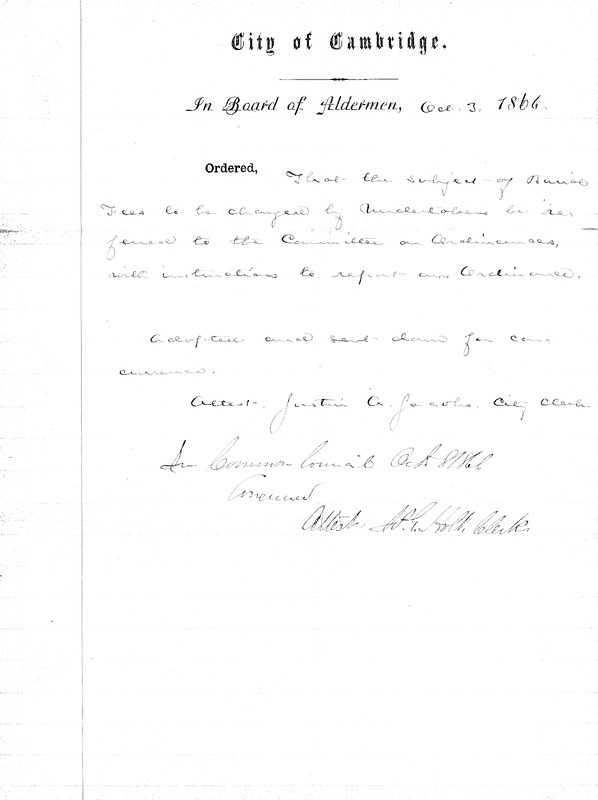 City of Cambridge.
In Board of Aldermen, Oct. 3, 1866.
Ordered, That the subject of Burial
Fees to be charged by Undertakers be re-
ferred to the Committee on Ordinances,
with instructions to report an Ordinance.
Adopted and sent down for con-
currence.
Attest. Justin A. Jacobs, City Clerk.
In Common Council Oct 8 1866
Concurred
Attest. Holt Clerk